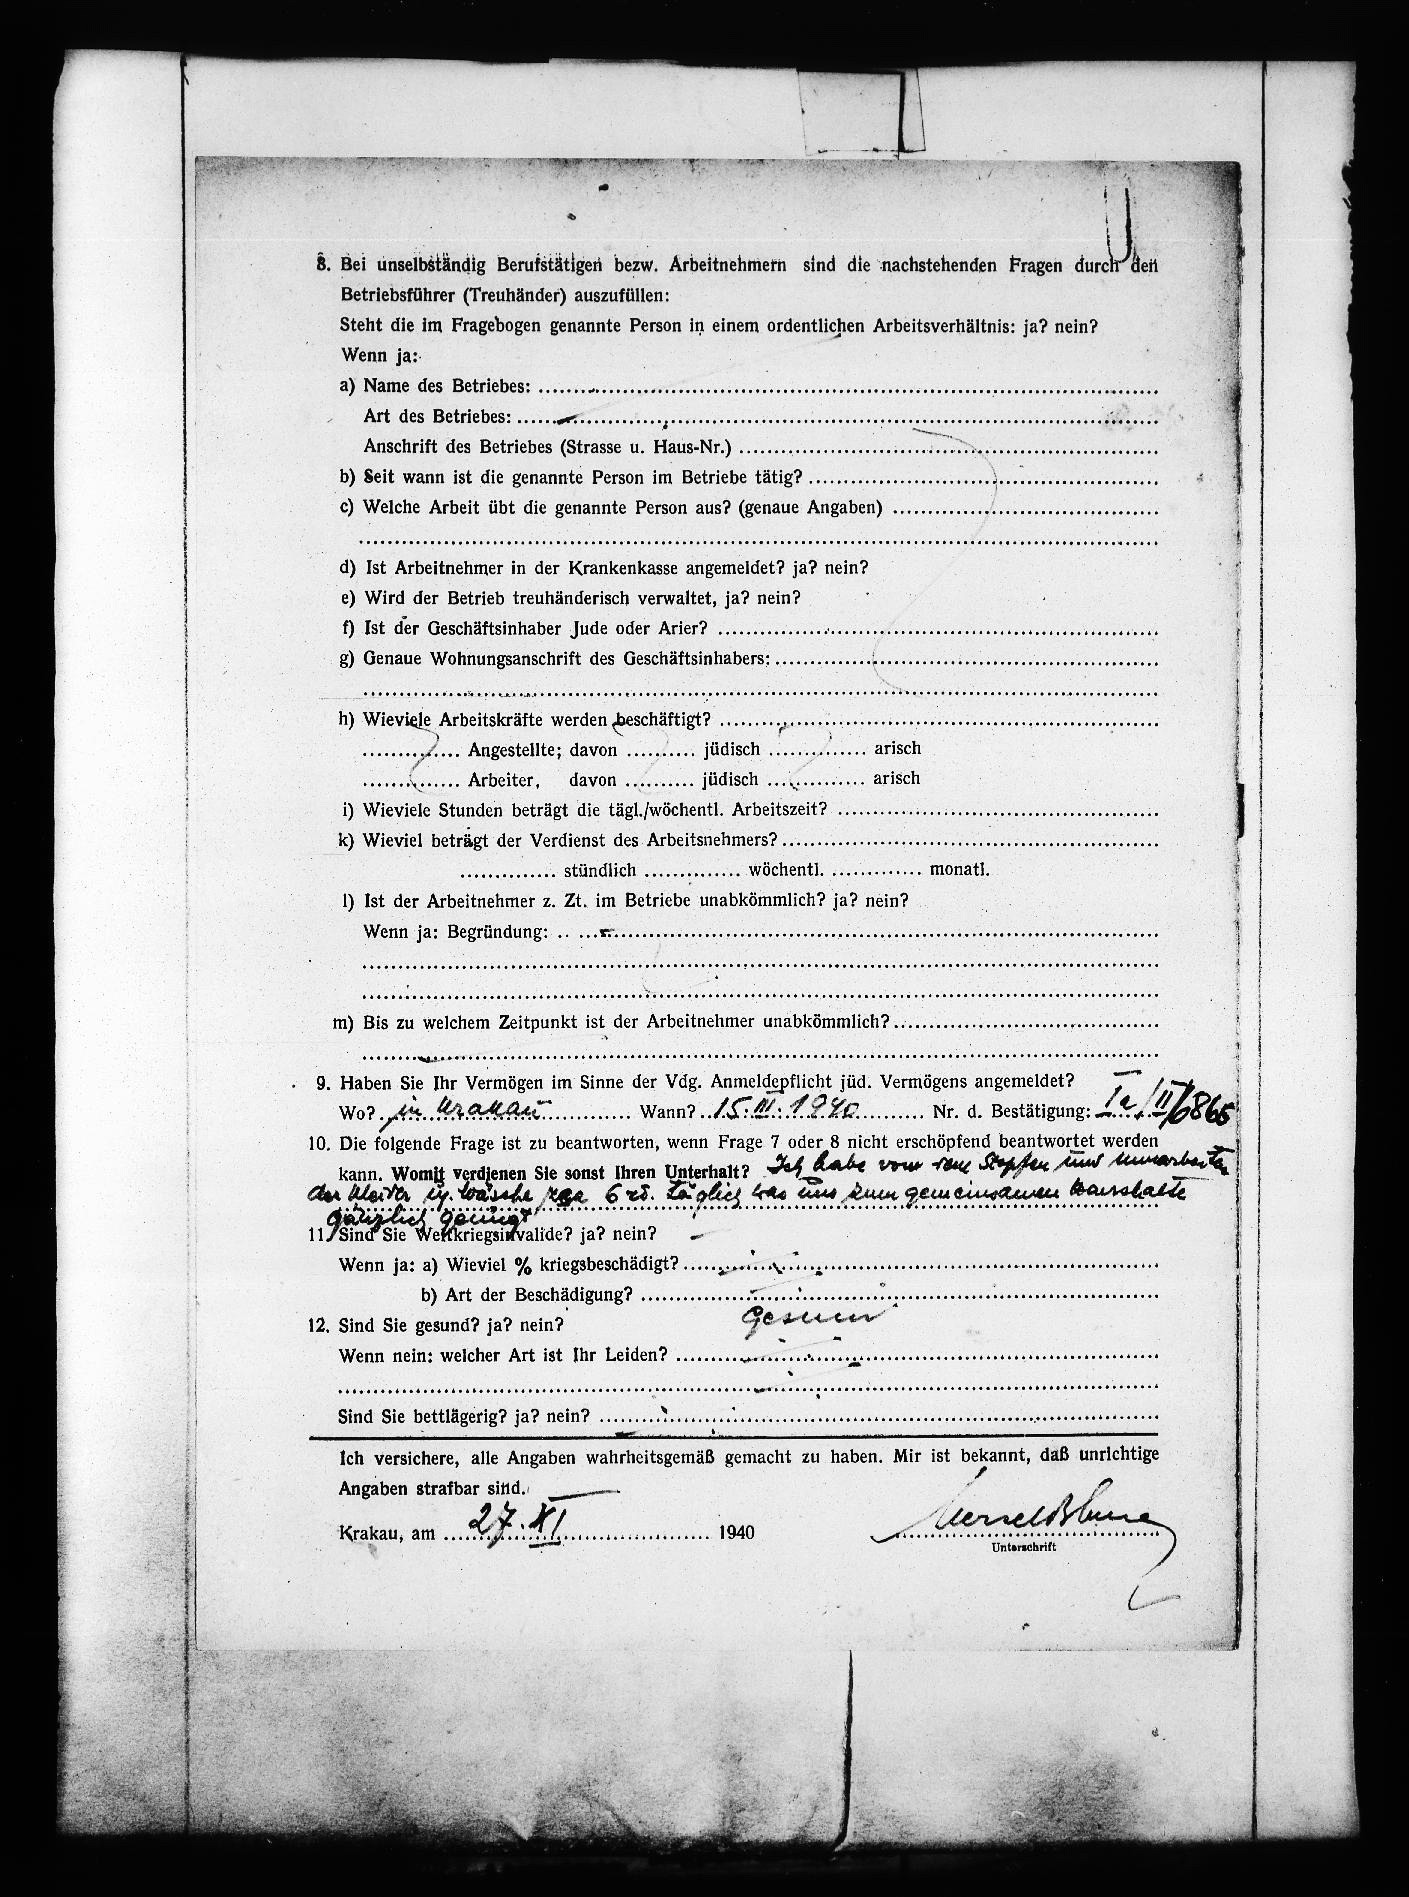 8. Bei unselbständig Berufstätigen bezw. Arbeitnehmern sind die nachstehenden Fragen durch den
Betriebsführer (Treuhänder) auszufüllen:
Steht die im Fragebogen genannte Person in einem ordentlichen Arbeitsverhältnis: ja? nein?
Wenn ja:
a) Name des Betriebes:
Art des Betriebes:
Anschrift des Betriebes (Strasse u. Haus-Nr.)
b) Seit wann ist die genannte Person im Betriebe tätig?
c) Welche Arbeit übt die genannte Person aus? (genaue Angaben)
d) Ist Arbeitnehmer in der Krankenkasse angemeldet? ja? nein?
e) Wird der Betrieb treuhänderisch verwaltet, ja? nein?
f) Ist der Geschäftsinhaber Jude oder Arier?
g) Genaue Wohnungsanschrift des Geschäftsinhabers:
h) Wieviele Arbeitskräfte werden beschäftigt?
Angestellte; davon jüdisch arisch
Arbeiter, davon jüdisch arisch
i) Wieviele Stunden beträgt die tägl./wöchentl. Arbeitszeit?
k) Wieviel beträgt der Verdienst des Arbeitsnehmers?
stündlich wöchentl. monatl.
l) Ist der Arbeitnehmer z. Zt. im Betriebe unabkömmlich? ja? nein?
Wenn ja: Begründung:
m) Bis zu welchem Zeitpunkt ist der Arbeitnehmer unabkömmlich?
9. Haben Sie Ihr Vermögen im Sinne der Vdg. Anmeldepflicht jüd. Vermögens angemeldet?
Wo? in Krakau Wann? 15. III. 1940 Nr. d. Bestätigung: Ia/II/6865
10. Die folgende Frage ist zu beantworten, wenn Frage 7 oder 8 nicht erschöpfend beantwortet werden
kann. Womit verdienen Sie sonst Ihren Unterhalt? Ich habe vom Stopfen und Umarbeiten
der Kleider Wäsche 6 zł. täglich was uns zum gemeinsamen Haushalte
gänzlich genügt
11. Sind Sie Weltkriegsinvalide? ja? nein?
Wenn ja: a) Wieviel % kriegsbeschädigt?
b) Art der Beschädigung?
12. Sind Sie gesund? ja? nein? gesund
Wenn nein: welcher Art ist Ihr Leiden?
Sind Sie bettlägerig? ja? nein?
Ich versichere, alle Angaben wahrheitsgemäß gemacht zu haben. Mir ist bekannt, daß unrichtige
Angaben strafbar sind.
Krakau, am 27. XI 1940
Unterschrift